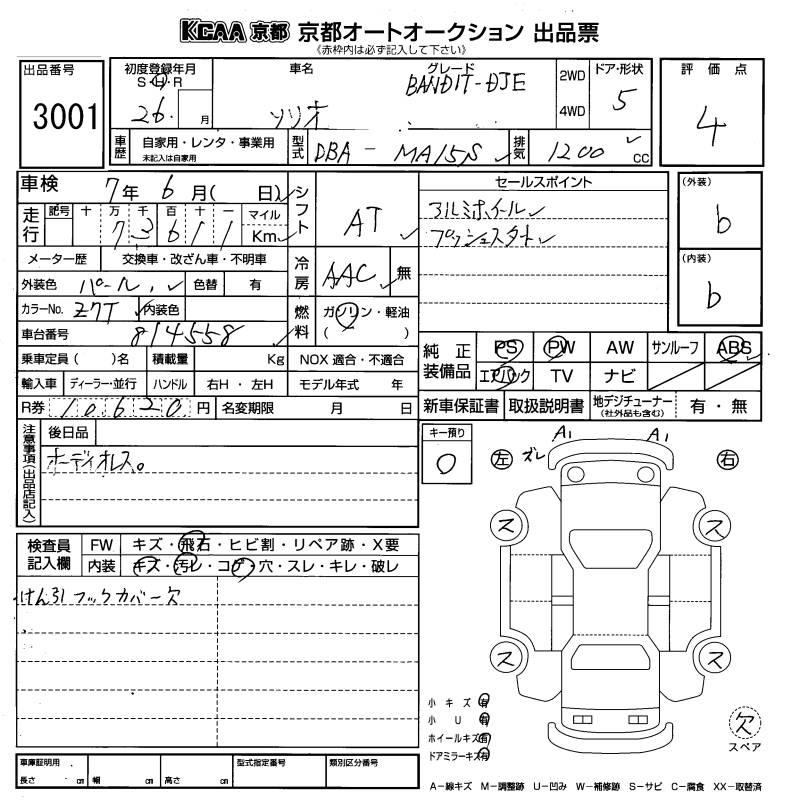 KCAA 京都 京都オートオークション 出品票
《赤枠内は必ず記入して下さい》
出品番号
3001
初度登録年月
S・H・R
26 月
車名
ソリオ
グレード
BANDIT-DJE
2WD
4WD
ドア・形状
5
評価点
4
車歴
自家用・レンタ・事業用
未記入は自家用
型式
DBA - MA15S
排気
1200 cc
車検
7年 6月( 日)
走行
記号 十 万 千 百 十 一
73611
マイル
Km
シフト
AT
メーター歴
交換車・改ざん車・不明車
冷房
AAC 無
外装色
パール
色替
有
カラーNo.
Z7T
内装色
燃料
ガソリン・軽油
( )
車台番号
814558
乗車定員 ( )名
積載量
Kg
NOX 適合・不適合
輸入車
ディーラー・並行
ハンドル
右H・左H
モデル年式 年
R券
10620円
名変期限 月 日
セールスポイント
アルミホイール
プッシュスタート
(外装)
b
(内装)
b
純正装備品
PS PW AW サンルーフ ABS
エアバック TV ナビ
新車保証書 取扱説明書
地デジチューナー
(社外品も含む)
有・無
注意事項(出品店記入)
後日品
オーディオレス。
キー預り
0
検査員記入欄
FW
キズ・飛石・ヒビ割・リペア跡・X要
内装
キズ・汚レ・コゲ・穴・スレ・キレ・破レ
けん引フックカバー欠
ズレ A1 A1
左 右
ス ス
ス ス
小キズ有
小U有
ホイールキズ有
ドアミラーキズ有
欠
スペア
車庫証明用
長さ cm 幅 cm 高さ cm
型式指定番号
類別区分番号
A-線キズ M-調整跡 U-凹み W-補修跡 S-サビ C-腐食 XX-取替済